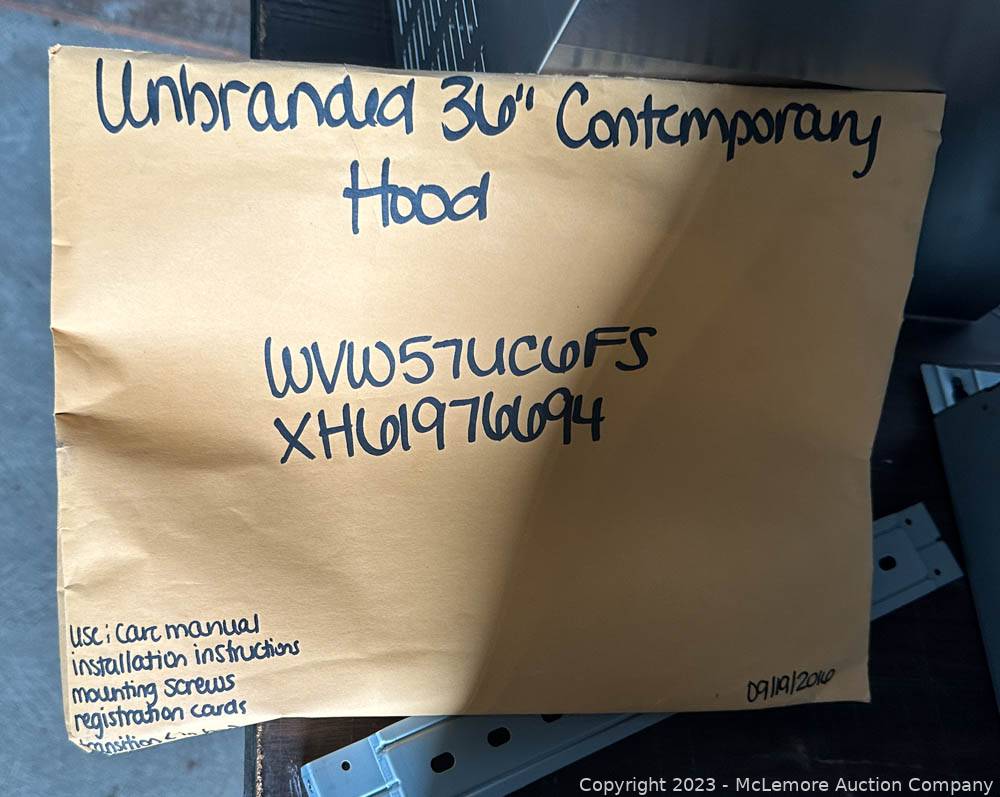 Unbranded 36" Contemporary
Hood
WVW57UC6FS
XH61976694
use & care manual
installation instructions
mounting screws
registration cards
transition
09/19/2016
Copyright 2023 - McLemore Auction Company